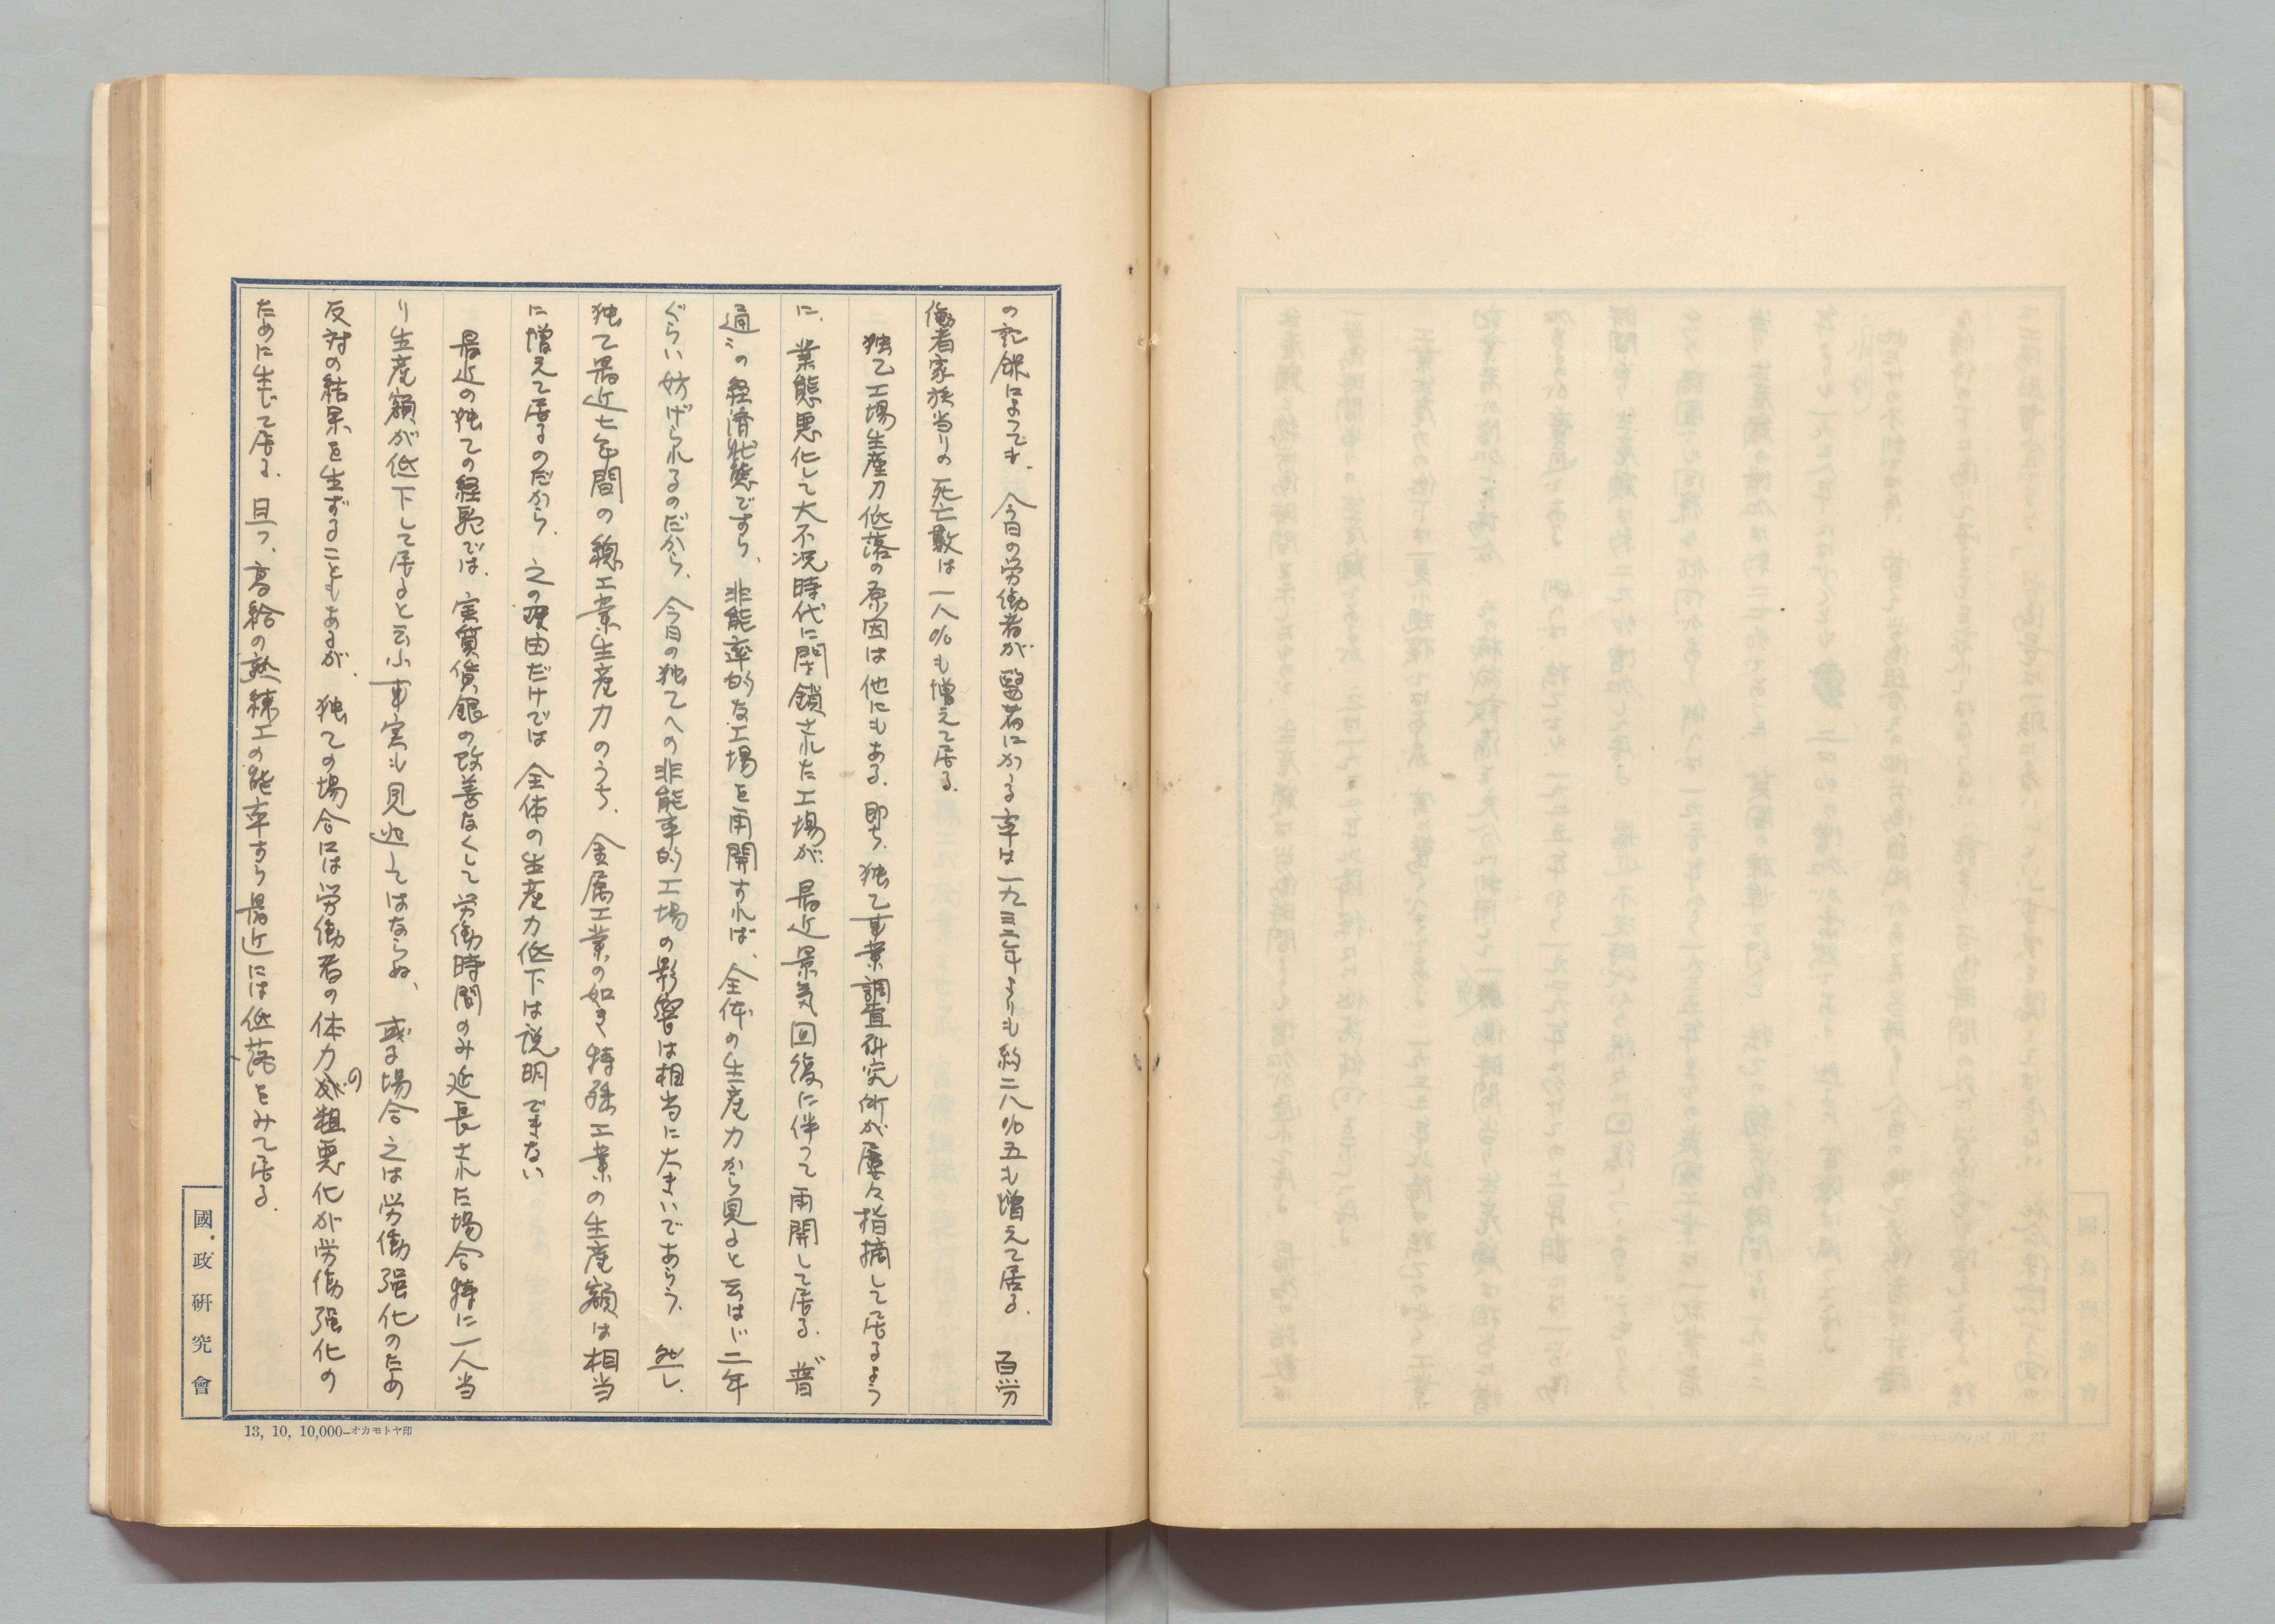 の記録によつても、今日の労働者が醫者にかゝる率は一九三三年よりも約二八%五も増えて居る。百労
働者家族当りの死亡数は一八%も増えて居る。
独乙工場生産力低落の原因は他にもある。即ち、独乙事業調査研究所が屡々指摘して居るよう
に、業態悪化して大不況時代に閉鎖された工場が、最近景気回復に伴つて再開して居る。普
通の経済状態ですら、非能率的な工場を再開すれば、全体の生産力から見ると云はゞ二年
ぐらい妨げられるのだから、今日の独乙への非能率的工場の影響は相当に大きいであらう。然し、
独乙最近七年間の総工業生産力のうち、金属工業の如き特殊工業の生産額は相当
に増えて居るのだから、之の理由だけでは全体の生産力低下は説明できない
最近の独乙の経験では、実質賃銀の改善なくして労働時間のみ延長された場合特に一人当
り生産額が低下して居ると云ふ事実も見逃してはならぬ、或る場合之は労働強化のため
反対の結果を生ずることもあるが、独乙の場合には労働者の体力の粗悪化が労働強化の
ために生じて居る。且つ、高給の熟練工の能率すら最近には低落をみて居る。
國政研究會
13, 10, 10,000—オカモトヤ印